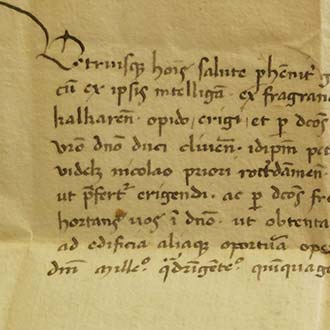 Utriusque hois salute phenit
cu ex ipsis intelliga ex fragran
kalkaren opido erigi et p dcos
vro dno duci cliven idipm pet
videlz nicolao priori rotterdamen
ut pfert erigendi ac p dcos fre
hortans vos i dno ut obtenta
ad edificia aliaque oportuna ope
dni mille qdringete quinquag